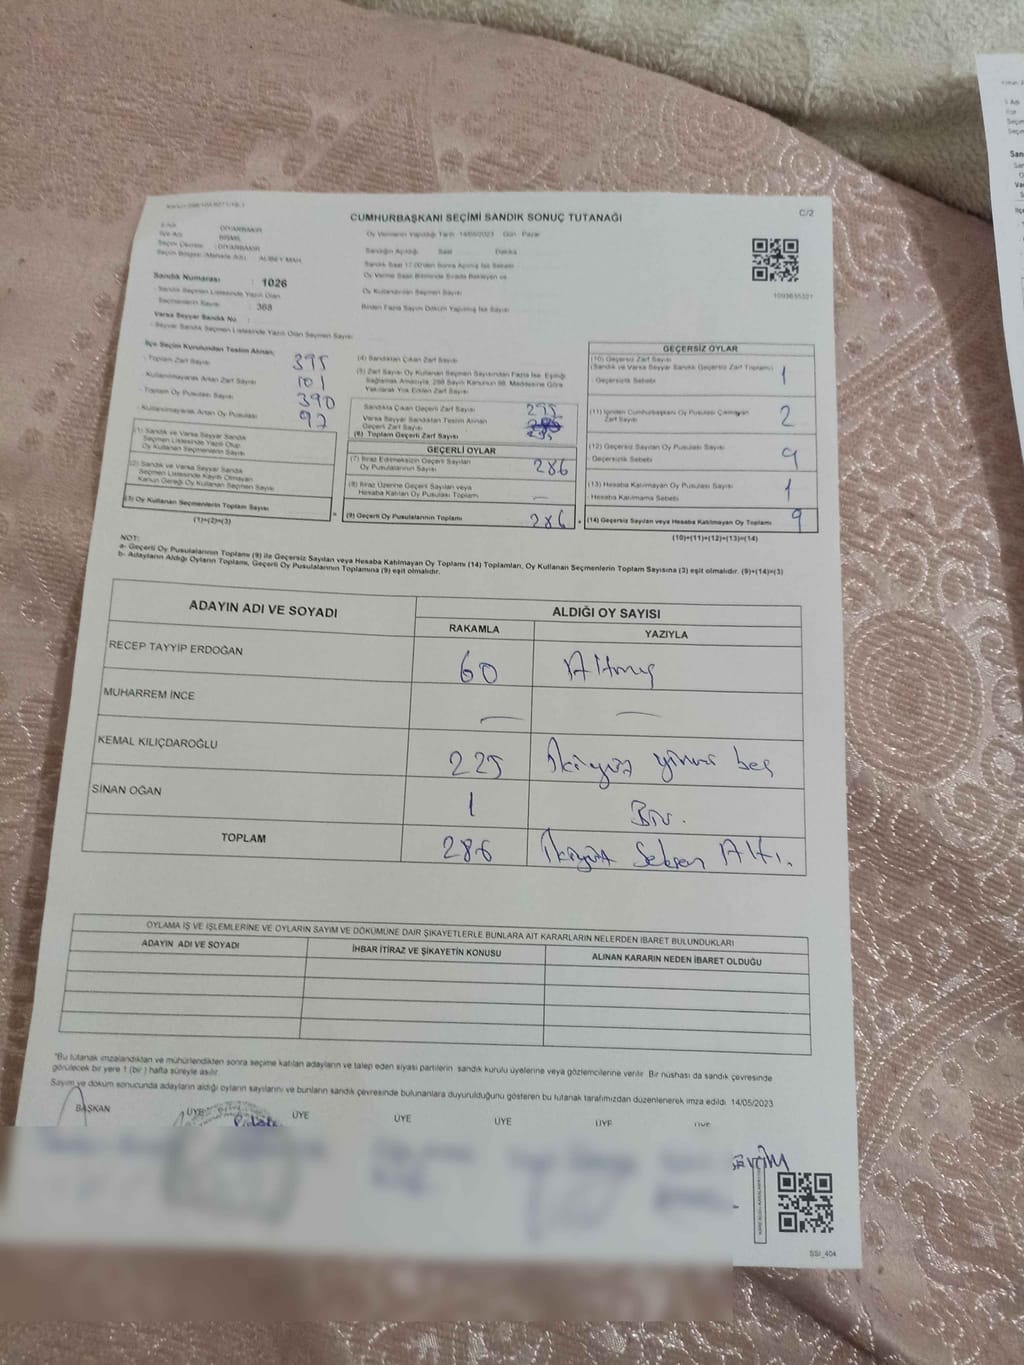 CUMHURBAŞKANI SEÇİMİ SANDIK SONUÇ TUTANAĞI
C/2
DİYARBAKIR
BİSMİL
DİYARBAKIR
Oy Vermenin Yapıldığı Tarih 14/05/2023 Gün : Pazar
Sandığın Açıldığı Saat Dakika
Sandık Numarası : 1026
Sandık Seçmen Listesinde Yazılı Olan
Seçmenlerin Sayısı : 368
Varsa Seyyar Sandık No
Seyyar Sandık Seçmen Listesinde Yazılı Olan Seçmen Sayısı
Oy Kullandırılan Seçmen Sayısı
Birden Fazla Sayım Döküm Yapılmış İse Sayısı
1093635321
İlçe Seçim Kurulundan Teslim Alınan;
Toplam Zarf Sayısı 395
Kullanılmayarak Artan Zarf Sayısı 101
Toplam Oy Pusulası Sayısı 390
Kullanılmayarak Artan Oy Pusulası 97
(1) Sandık ve Varsa Seyyar Sandık
Seçmen Listesinde Yazılı Olup
Oy Kullanan Seçmenlerin Sayısı
(2) Sandık ve Varsa Seyyar Sandık
Seçmen Listesinde Kayıtlı Olmayan
Kanun Gereği Oy Kullanan Seçmenlerin Sayısı
(3) Oy Kullanan Seçmenlerin Toplam Sayısı
(1)+(2)=(3)
(4) Sandıktan Çıkan Zarf Sayısı
(5) Zarf Sayısı Oy Kullanan Seçmen Sayısından Fazla İse, Eşitliği
Sağlamak Amacıyla, 298 Sayılı Kanunun 98. Maddesine Göre
Yakılarak Yok Edilen Zarf Sayısı
Sandıkta Çıkan Geçerli Zarf Sayısı 295
Varsa Seyyar Sandıktan Teslim Alınan
Geçerli Zarf Sayısı
(6) Toplam Geçerli Zarf Sayısı 295
GEÇERLİ OYLAR
(7) İtiraz Edilmeksizin Geçerli Sayılan
Oy Pusulalarının Sayısı 286
(8) İtiraz Üzerine Geçerli Sayılan veya
Hesaba Katılan Oy Pusulası Toplamı —
(9) Geçerli Oy Pusulalarının Toplamı 286
GEÇERSİZ OYLAR
(10) Geçersiz Zarf Sayısı
(Sandık ve Varsa Seyyar Sandık Geçersiz Zarf Toplamı) 1
Geçersizlik Sebebi
(11) İçinden Cumhurbaşkanı Oy Pusulası Çıkmayan
Zarf Sayısı 2
(12) Geçersiz Sayılan Oy Pusulası Sayısı 9
Geçersizlik Sebebi
(13) Hesaba Katılmayan Oy Pusulası Sayısı 1
Hesaba Katılmama Sebebi
(14) Geçersiz Sayılan veya Hesaba Katılmayan Oy Toplamı 9
(10)+(11)+(12)+(13)=(14)
NOT:
a- Geçerli Oy Pusulalarının Toplamı (9) ile Geçersiz Sayılan veya Hesaba Katılmayan Oy Toplamı (14) Toplamları, Oy Kullanan Seçmenlerin Toplam Sayısına (3) eşit olmalıdır. (9)+(14)=(3)
b- Adayların Aldığı Oyların Toplamı, Geçerli Oy Pusulalarının Toplamına (9) eşit olmalıdır.
ADAYIN ADI VE SOYADI ALDIĞI OY SAYISI
RAKAMLA YAZIYLA
RECEP TAYYİP ERDOĞAN 60 Altmış
MUHARREM İNCE — —
KEMAL KILIÇDAROĞLU 225 İkiyüz yirmi beş
SİNAN OĞAN 1 Bir.
TOPLAM 286 İkiyüz Seksen Altı.
OYLAMA İŞ VE İŞLEMLERİNE VE OYLARIN SAYIM VE DÖKÜMÜNE DAİR ŞİKAYETLERLE BUNLARA AİT KARARLARIN NELERDEN İBARET BULUNDUKLARI
ADAYIN ADI VE SOYADI İHBAR İTİRAZ VE ŞİKAYETİN KONUSU ALINAN KARARIN NEDEN İBARET OLDUĞU
"Bu tutanak imzalandıktan ve mühürlendikten sonra seçime katılan adayların ve talep eden siyasi partilerin sandık kurulu üyelerine veya gözlemcilerine verilir. Bir nüshası da sandık çevresinde
görülecek bir yere 1 (bir) hafta süreyle asılır.
Sayım ve döküm sonucunda adayların aldığı oyların sayılarını ve bunların sandık çevresinde bulunanlara duyurulduğunu gösteren bu tutanak tarafımızdan düzenlenerek imza edildi. 14/05/2023
BAŞKAN ÜYE ÜYE ÜYE ÜYE ÜYE ÜYE
SSI_404